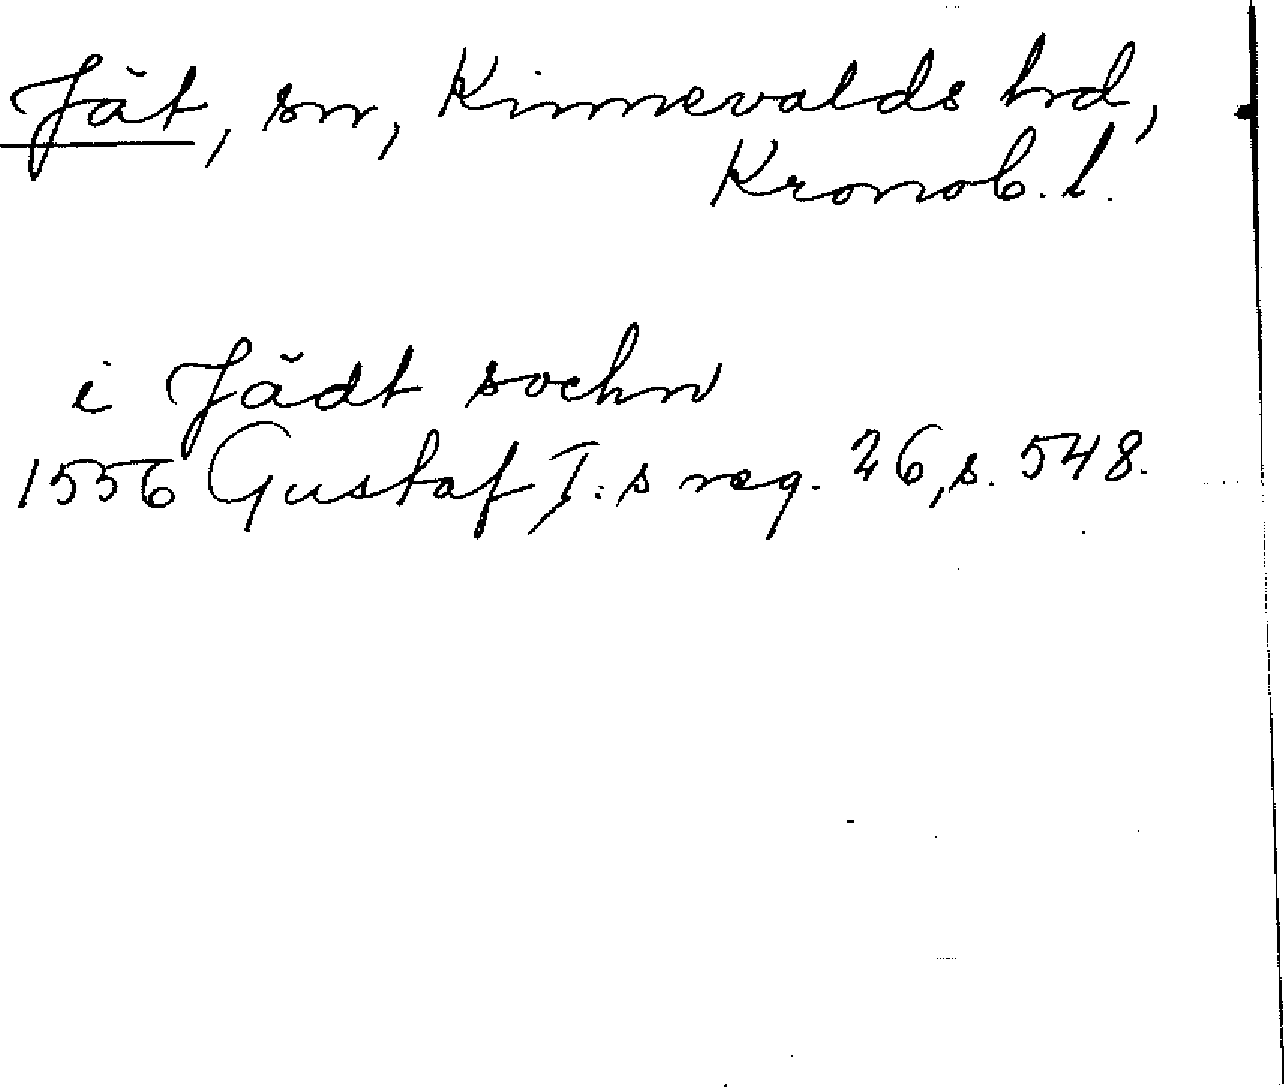 Jät, sn, Kinnevalds hrd,
Kronob. l.
i Jädt sochn
1556 Gustaf I:s reg. 26, s. 548.